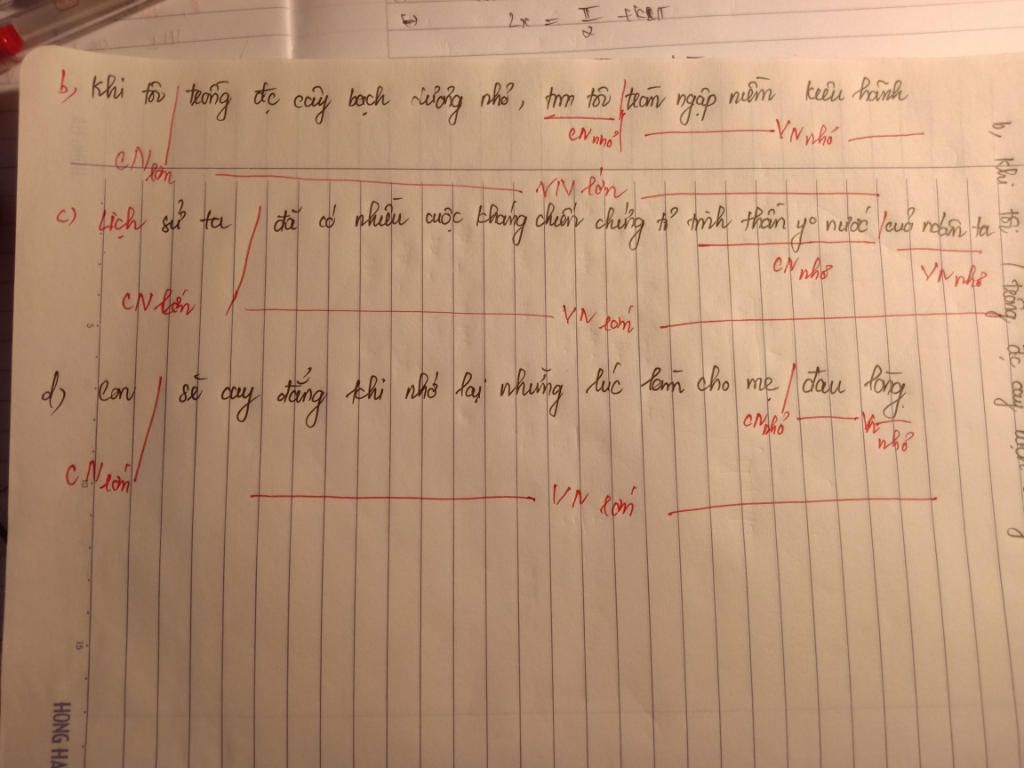 2x = π/2 + k2π
b, Khi tôi / trồng đc cây bạch dương nhỏ, tim tôi / tràn ngập niềm kiêu hãnh
CN nhỏ VN nhỏ
CN lớn VN lớn
c) Lịch sử ta / đã có nhiều cuộc kháng chiến chứng tỏ tinh thần yº nước / của ndân ta
CN nhỏ VN nhỏ
CN lớn VN lớn
d) Con / sẽ cay đắng khi nhớ lại những lúc làm cho mẹ / đau lòng
CN nhỏ VN nhỏ
CN lớn VN lớn
b, khi tôi / trồng đc cây
5
10
15
HONG HA